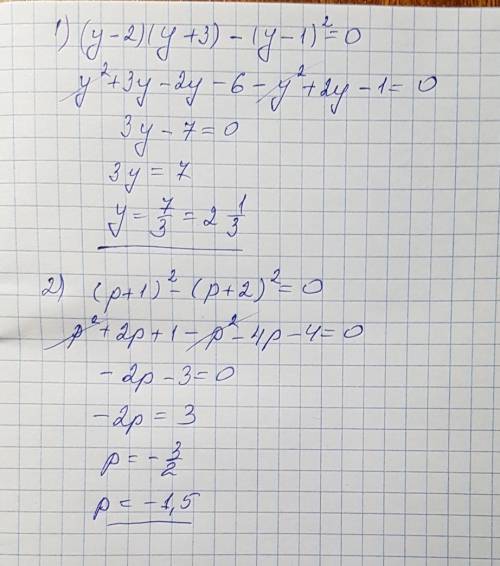 1) (y-2)(y+3)-(y-1)²=0
y²+3y-2y-6-y²+2y-1=0
3y-7=0
3y=7
y=7/3=2 1/3
2) (p+1)²-(p+2)²=0
p²+2p+1-p²-4p-4=0
-2p-3=0
-2p=3
p=-3/2
p=-1,5